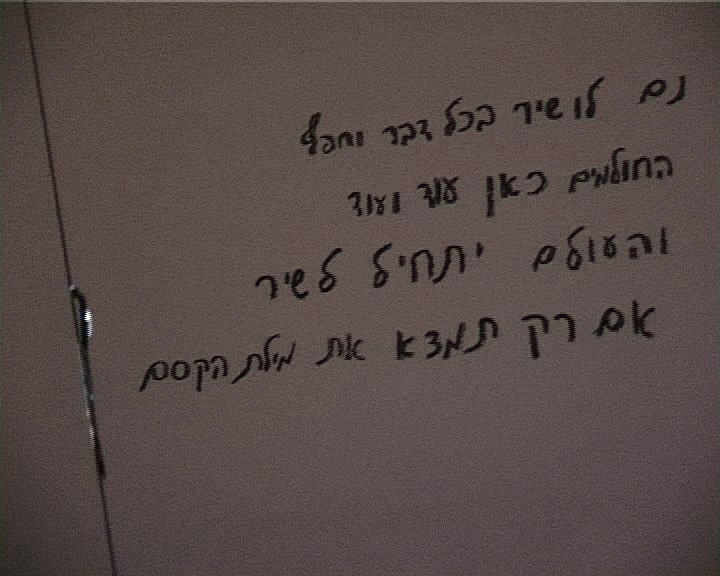 נם לו שיר בכל דבר וחפץ
החולמים כאן עוד ועוד
והעולם יתחיל לשיר
אם רק תמצא את מילת הקסם